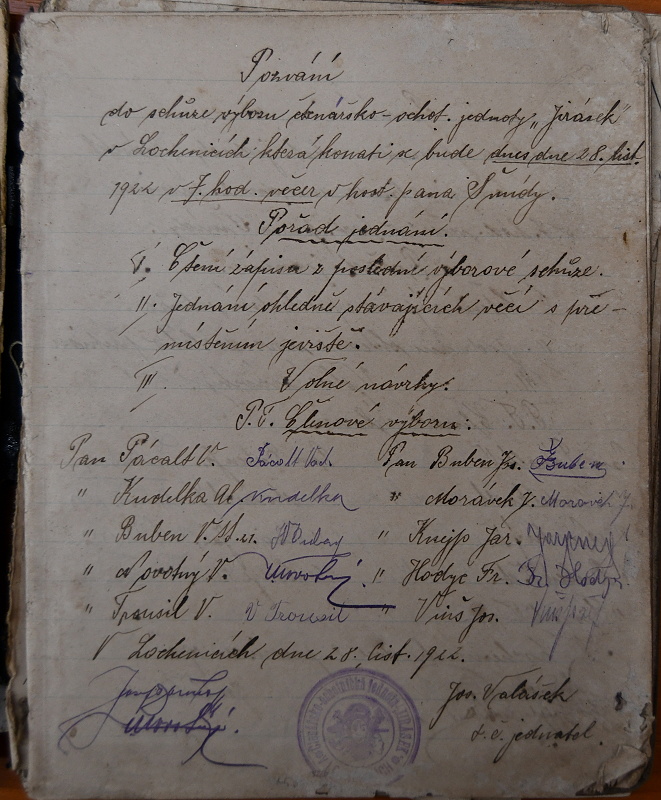 Pozvání
do schůze výboru čtenářsko-ochot. jednoty „Jirásek"
v Lochenicích která konati se bude dnes dne 28. list.
1922 v 7 hod. večer v host. pana Šundy.
Pořad jednání.
I. Čtení zápisu z poslední výborové schůze.
II. Jednání ohledně stávajících věcí s pře-
místěním jeviště.
III. Volné návrhy.
P.T. Členové výboru:
Pan Pácalt V. Pácalt Vád. Pan Buben Jos. Buben
" Kudelka Al. Kudelka " Morávek J. Morávek J.
" Buben V. " Knejp Jar.
" Novotný V. Novotný " Hodyc Fr. Fr. Hodyc
" Trousil V. V Trousil " Viuš Jos.
V Lochenicích, dne 28. list. 1922.
Jos. Valášek
t. č. jednatel.